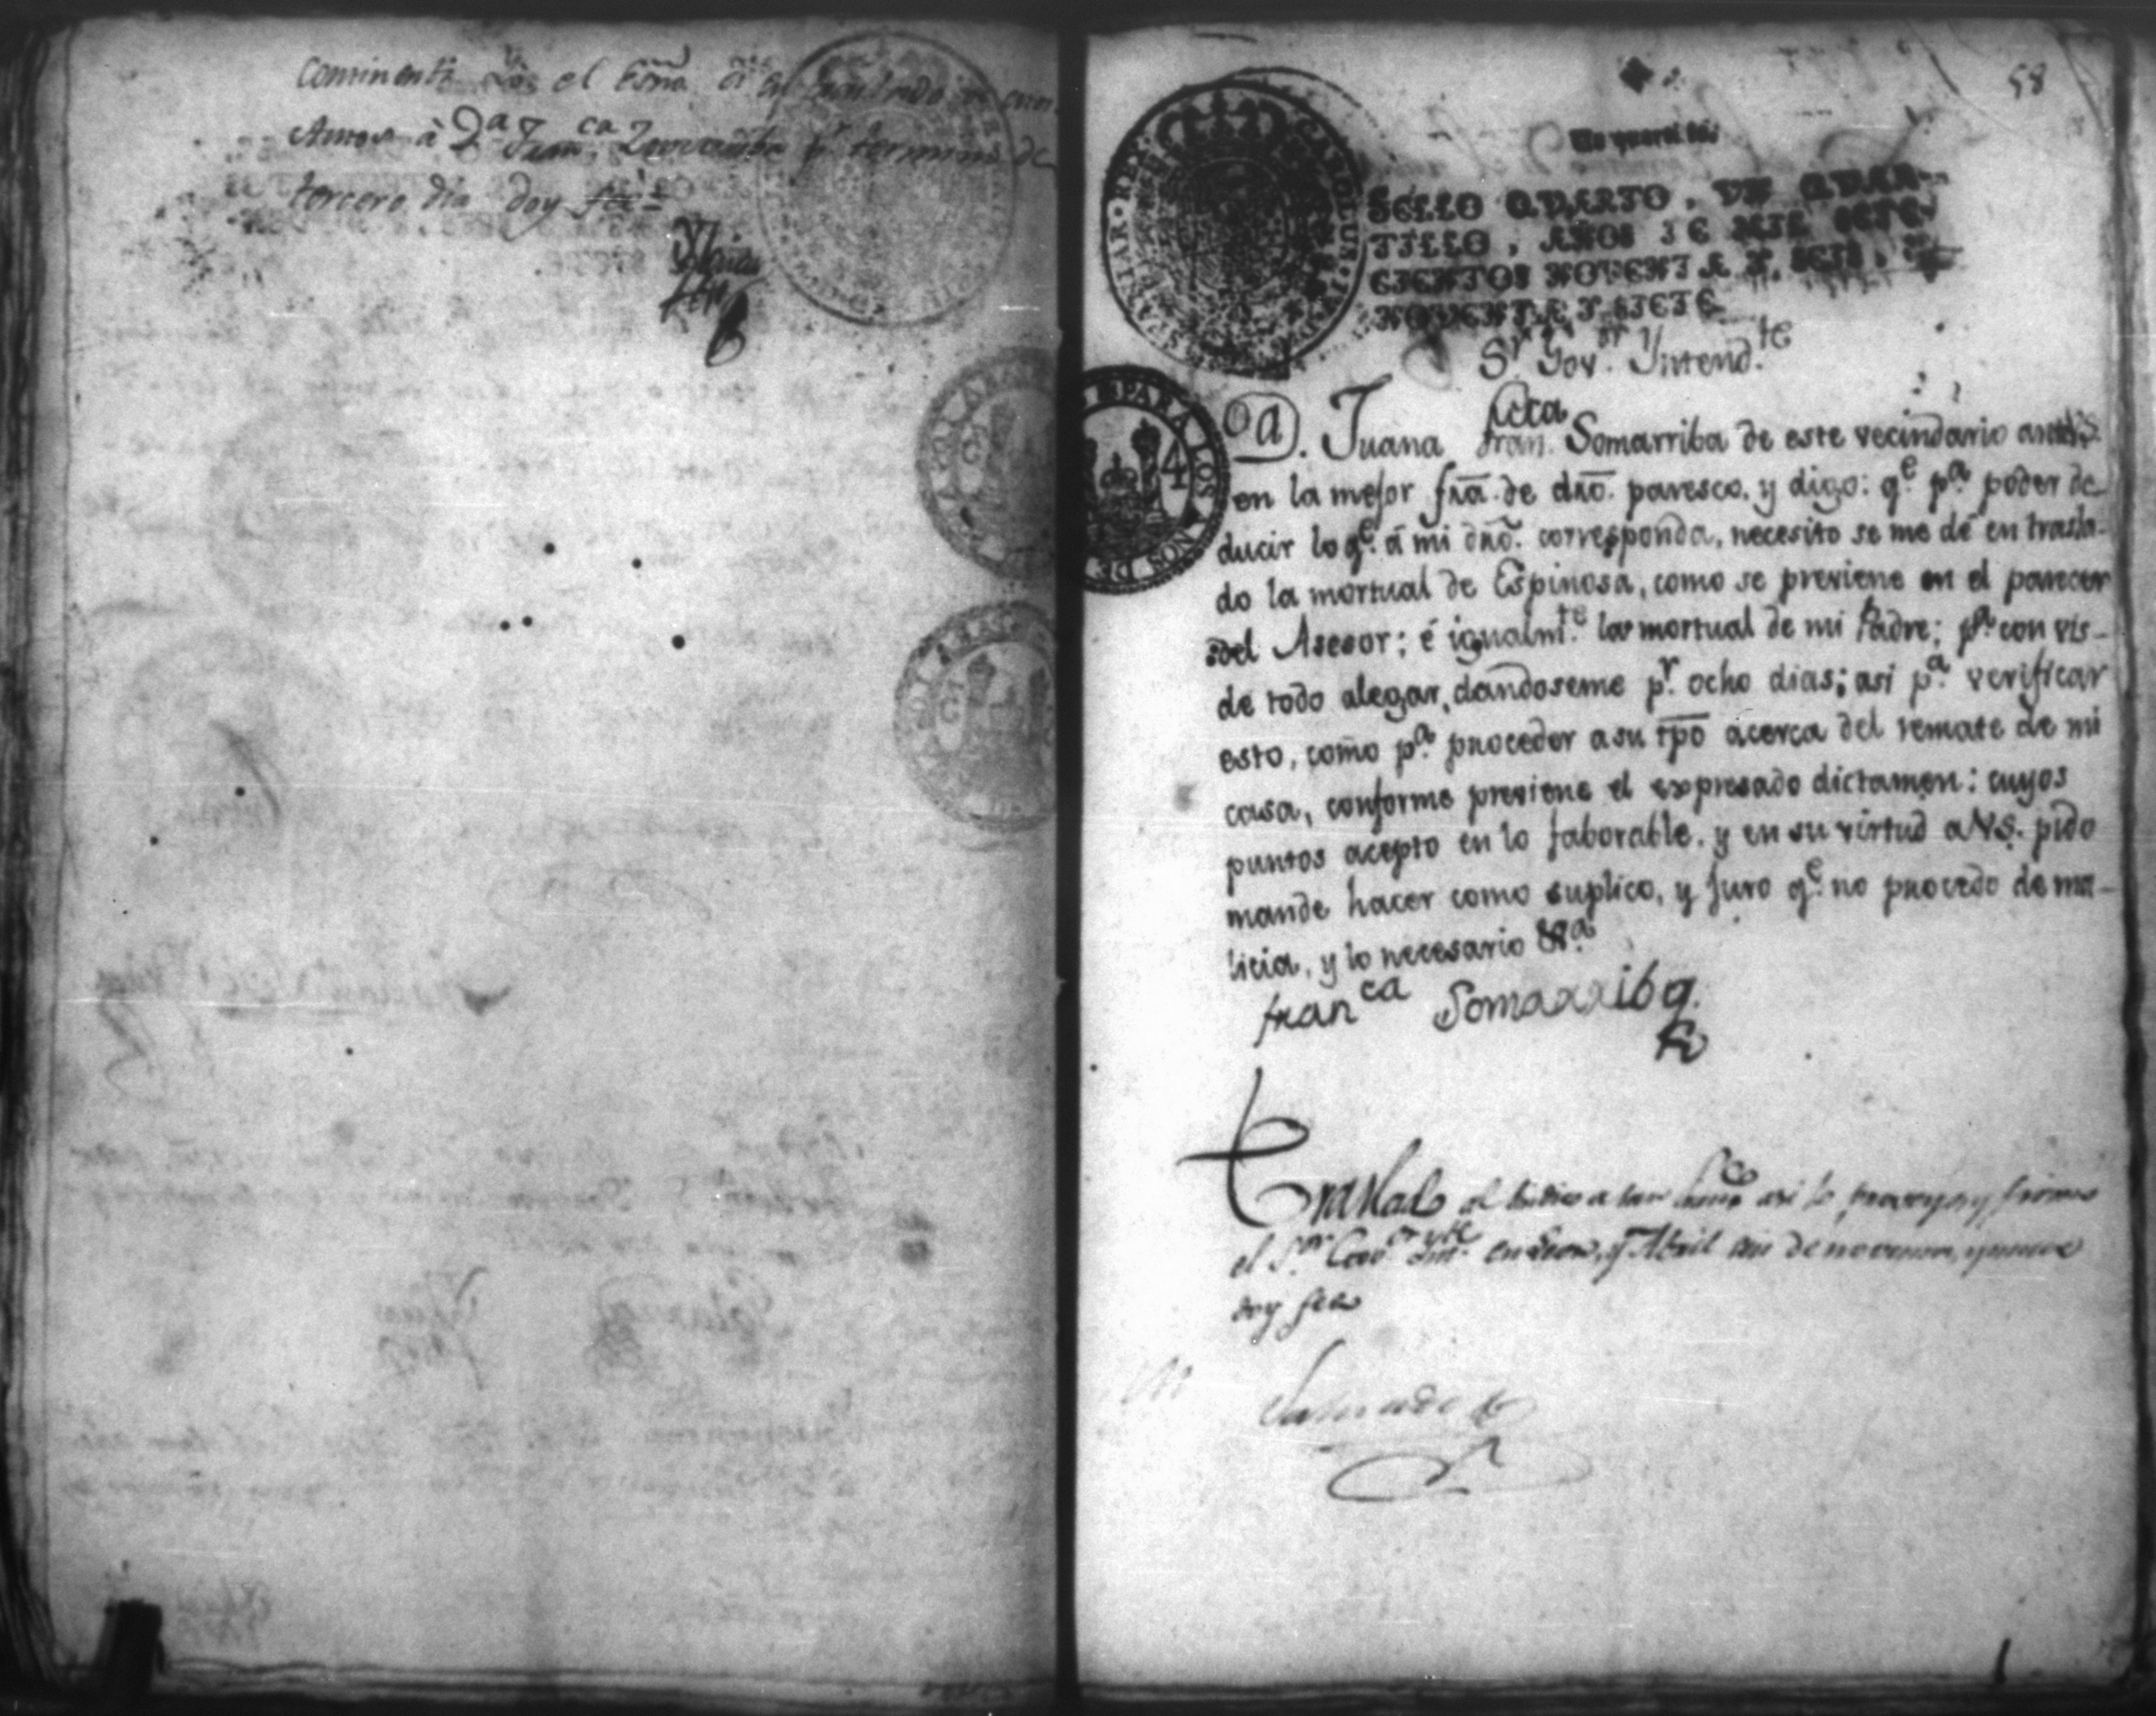 cominenti yo el Essno. di el traslado de
Autos à Da. Franca. Zomarriba pr. termino de
tercero dia doy fee
58
Un quartillo
SELLO QVARTO, VN QVAR-
TILLO, AÑOS DE MIL SETE-
CIENTOS NOVENTA Y SEIS, Y
NOVENTA Y SIETE.
CAROLUS
HISPANIAR·REX
Sr. Govr. Yntendte.
Da. Juana Franca. Somarriba de este vecindario ante VS.
en la mejor fra. de dro. paresco, y digo: qe. pa. poder de-
ducir lo qe. â mi dro. corresponda, necesito se me dé en trasla-
do la mortual de Espinosa, como se previene en el parecer
del Asesor; é igualmte. la mortual de mi Padre; pa. con vis-
de todo alegar, dandoseme pr. ocho dias; asi pa. verificar
esto, como pa. proceder a su tpo acerca del remate de mi
casa, conforme previene el expresado dictamen: cuyos
puntos acepto en lo faborable, y en su virtud a VS. pido
mande hacer como suplico, y juro qe. no procedo de ma-
licia, y lo necesario &a.
Franca Somarriba.
Traslado al asi lo proveyo, y firmo
el Sor. Govor. Inte. en Leon, y Abril de noventa, y nueve
doy fee
Salvador